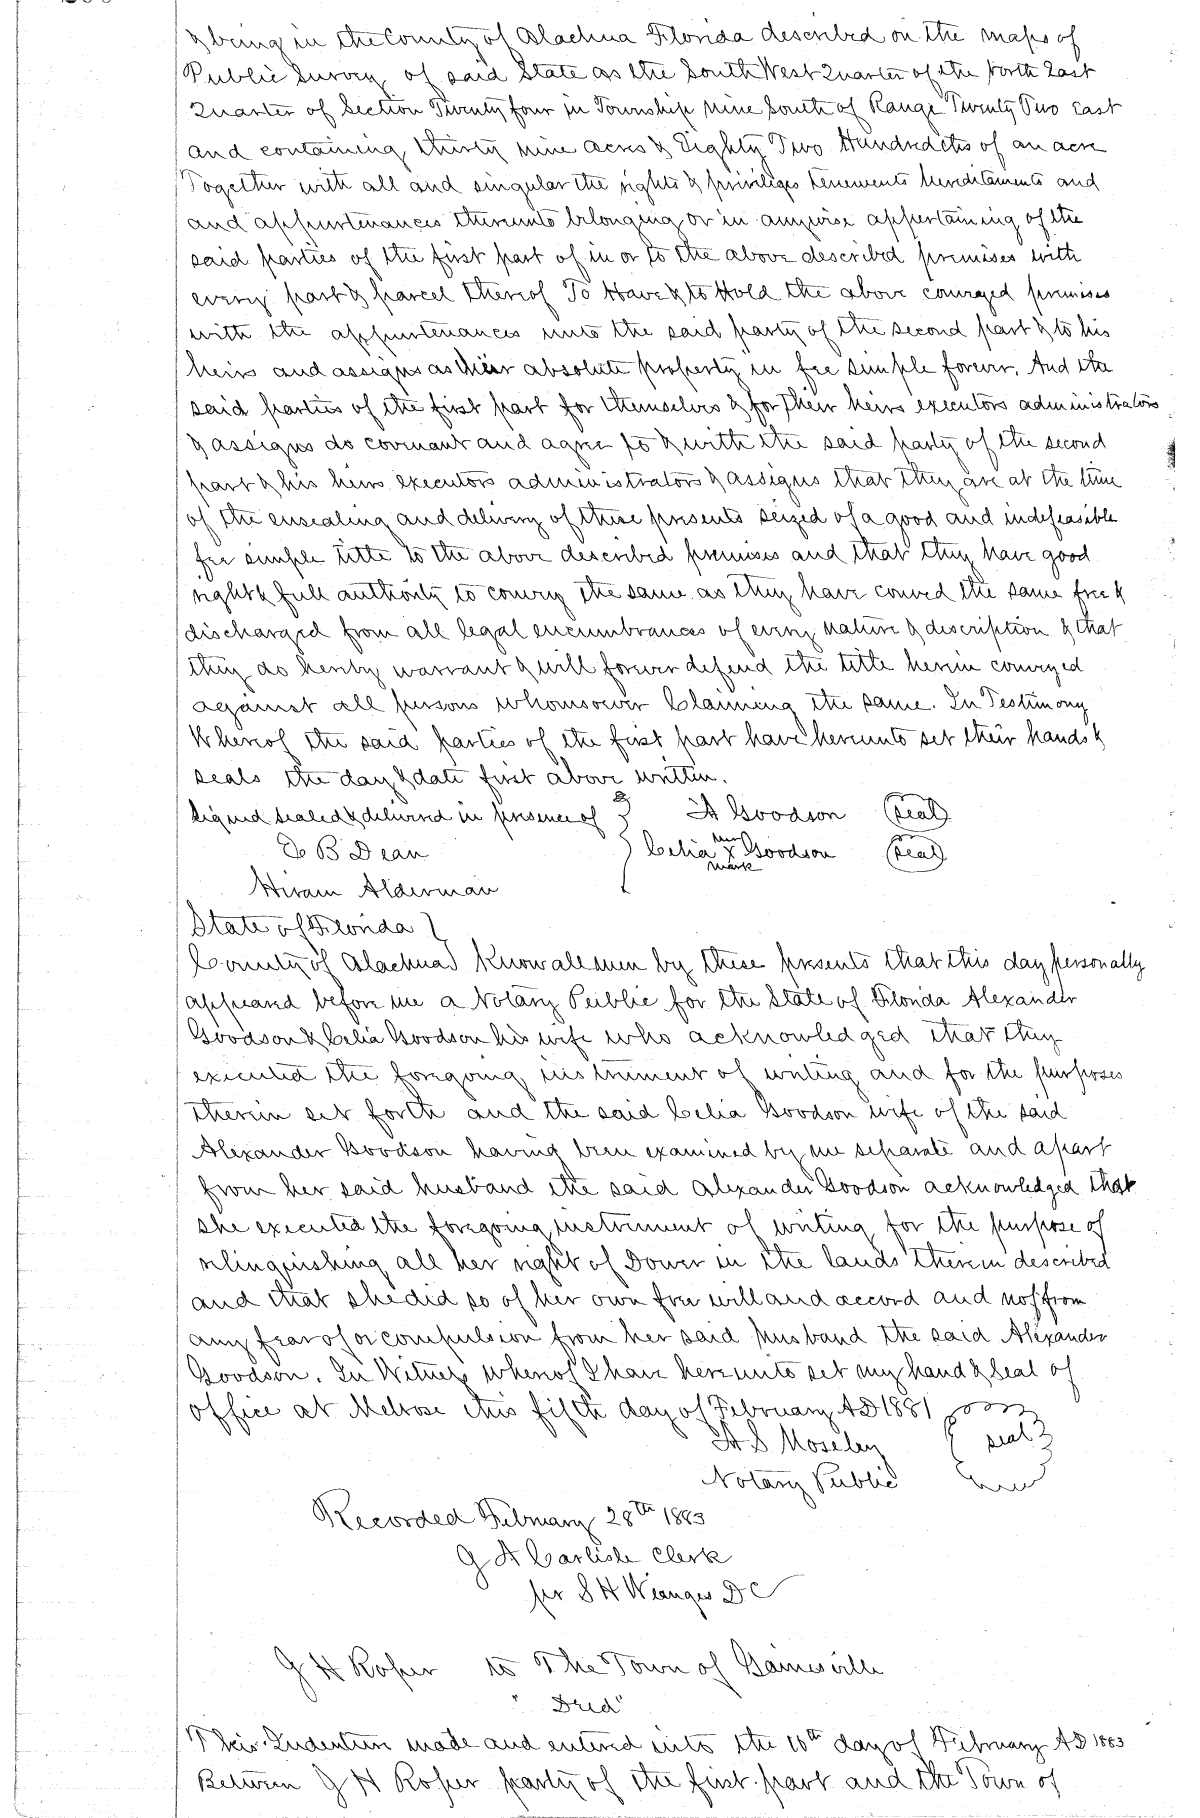 & being in the County of Alachua Florida described on the maps of
Public Survey of said State as the South West Quarter of the North East
Quarter of Section Twenty four in Township nine South of Range Twenty Two East
and containing thirty nine acres & Eighty Two Hundredths of an acre
Together with all and singular the rights & priviliges tenements hereditaments and
and appurtenances thereunto belonging or in anywise appertaining of the
said parties of the first part of in or to the above described premises with
every part & parcel thereof To Have & to Hold the above conveyed premises
with the appurtenances unto the said party of the second part & to his
heirs and assigns as their absolute property in fee simple forever. And the
said parties of the first part for themselves & for Their heirs executors administrators
& assigns do covenant and agree to & with the said party of the second
part & his heirs executors administrators & assigns that they are at the time
of the ensealing and delivery of these presents seized of a good and indefeasible
fee simple title to the above described premises and that they have good
right & full authority to convey the same as they have conved the same free &
discharged from all legal encumbrances of every nature & description & that
they do hereby warrant & will forever defend the title herein conveyed
against all persons whomsoever Claiming the same. In Testimony
Whereof the said parties of the first part have hereunto set their hands &
seals the day & date first above written.
Signed sealed & delivered in presence of } A Goodson (seal)
B Dean Celia her x mark Goodson (seal)
Hiram Alderman
State of Florida }
County of Alachua } Know all men by these presents that this day personally
appeared before me a Notary Public for the State of Florida Alexander
Goodson & Celia Goodson his wife who acknowledged that they
executed the foregoing instrument of writing and for the purposes
therein set forth and the said Celia Goodson wife of the said
Alexander Goodson having been examined by me separate and apart
from her said husband the said Alexander Goodson acknowledged that
she executed the foregoing instrument of writing for the purpose of
relinquishing all her right of Dower in the lands therein described
and that she did so of her own free will and accord and not from
any fear of or compulsion from her said husband the said Alexander
Goodson. In Witness whereof I have hereunto set my hand & Seal of
office at Melrose this fifth day of February AD 1881
A S Moseley (seal)
Notary Public
Recorded February 28th 1883
G A Carlisle Clerk
per S H Wienges DC
G H Roper to The Town of Gainesville
"Deed"
This Indenture made and entered into the 10th day of February AD 1883
Between G H Roper party of the first part and the Town of